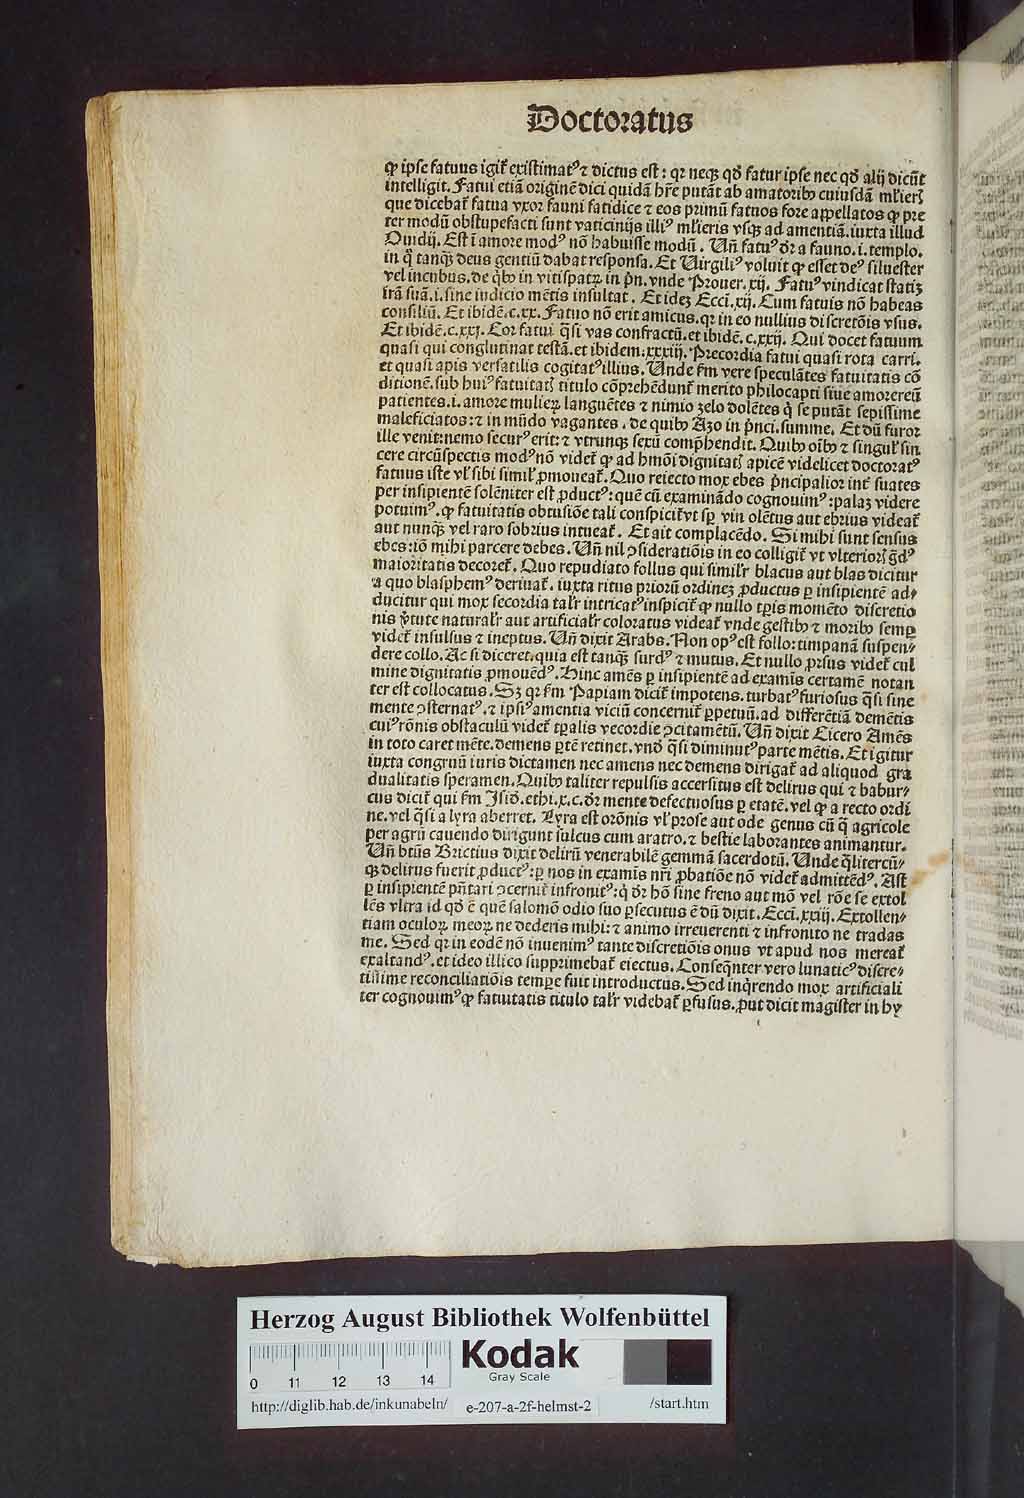 Doctoratus
ꝙ ipse fatuus igit᷑ existimatꝰ ⁊ dictus est: qꝛ neqꝫ qđ fatur ipse nec qđ alij dicūt
intelligit. Fatui etiā originē dici quidā hr̄e putāt ab amatoribꝰ cuiusdā ml'ieris
que dicebat᷑ fatua vxor fauni fatidice ⁊ eos primū fatuos fore appellatos ꝙ pre
ter modū obstupefacti sunt vaticinijs illiꝰ ml'ieris vsqꝫ ad amentiā. iuxta illud
Ouidij. Est ī amore modꝰ nō habuisse modū. Uñ fatuꝰ dr̄ a fauno. i. templo.
in q̊ tanqꝫ deus gentiū dabat responsa. Et Uirgiliꝰ voluit ꝙ esset deꝰ siluester
vel incubus. de q̊bꝰ in vitispatꝝ in pn̄. vnde Prouer. xij. Fatuꝰ vindicat statiꝫ
irā suā. i. sine iudicio mētis insultat. Et ideꝫ Ecci. xij. Cum fatuis nō habeas
consiliū. Et ibidē. c. xx. Fatuo nō erit amicus. qꝛ in eo nullius discretōis vsus.
Et ibidē. c. xxj. Cor fatui q̄si vas confractū. et ibidē. c. xxij. Qui docet fatuum
quasi qui conglutinat testā. et ibidem: xxxiij. Precordia fatui quasi rota carri.
et quasi apis versatilis cogitatꝰ illius. Unde s̄m vere speculātes fatuitatis cō
ditionē. sub huiꝰ fatuitatis titulo cōprehēdunt᷑ merito philocapti siue amorereū
patientes. i. amore mulieꝝ languētes ⁊ nimio zelo dolētes q̊ se putāt sepissime
maleficiatos: ⁊ in mūdo vagantes. de quibꝰ Azo in pn̄ci. summe. Et dū furor
ille venit: nemo securꝰ erit: ⁊ vtrunqꝫ sexū comp̄hendit. Quibꝰ oībꝰ ⁊ singul' sin
cere circūspectis modꝰ nō videt᷑ ꝙ ad hmōi dignitatis apicē videlicet doctoratꝰ
fatuus iste vl' sibi simil' ꝓmoueat᷑. Quo reiecto mox ebes pn̄cipalior int' suates
per insipientē solēniter est ꝓductꝰ: quē cū examinādo cognouimꝰ: palaꝫ videre
potuimꝰ. ꝙ fatuitatis obtusiōe tali conspicit᷑ vt sꝑ vin olētus aut ebrius videat᷑
aut nunqꝫ vel raro sobrius intueat᷑. Et ait complacēdo. Si mihi sunt sensus
ebes: iō mihi parcere debes. Uñ nil ꝯsiderationis in eo colligit᷑ vt vlterioris g̃dꝰ
maioritatis decoret᷑. Quo repudiato follus qui simil'r blacus aut blas dicitur
a quo blasphemꝰ deriuat᷑. iuxta ritus priorū ordineꝫ ꝓductus ꝑ insipientē ad/
ducitur qui mox secordia tal'r intricatꝰ inspicit᷑ ꝙ nullo tꝑis momēto discretio
nis v̄tute natural'r aut artificial'r coloratus videat᷑ vnde gestibꝰ ⁊ moribꝰ semꝑ
videt᷑ insulsus ⁊ ineptus. Uñ dixit Arabs. Non opꝰ est follo: timpanā suspen/
dere collo. Ac si diceret. quia est tanqꝫ surdꝰ ⁊ mutus. Et nullo ꝓrsus videt᷑ cul
mine dignitatis ꝓmouēdꝰ. Hinc amēs ꝑ insipientē ad examis certamē notan
ter est collocatus. Sꝫ qꝛ s̄m Papiam dicit᷑ impotens. turbatꝰ furiosus q̄si sine
mente ꝯsternatꝰ. ⁊ ipsiꝰ amentia viciū concernit᷑ ꝑpetuū. ad differētiā demētis
cuiꝰ rōnis obstaculū videt᷑ tꝑalis vecordie ꝯcitamētū. Uñ dixit Cicero Amēs
in toto caret mēte. demens ꝑtē retinet. vnō q̄si diminutꝰ parte mētis. Et igitur
iuxta congruū iuris dictamen nec amens nec demens dirigat᷑ ad aliquod gra
dualitatis speramen. Quibꝰ taliter repulsis accersitus est delirus qui ⁊ babur/
cus dicit᷑ qui s̄m Isid. ethi. x. c. dr̄ mente defectuosus ꝑ etatē. vel ꝙ a recto ordi
ne. vel q̄si a lyra aberret. Lyra est orōnis vl' prose aut ode genus cū q̊ agricole
per agrū cauendo dirigunt sulcus cum aratro. ⁊ bestie laborantes animantur.
Uñ btūs Brictius dixit delirū venerabilē gemmā sacerdotū. Unde q̄litercū/
qꝫ delirus fuerit ꝓductꝰ: ꝑ nos in examis nr̄i ꝓbatiōe nō videt᷑ admittēdꝰ. Ast
ꝑ insipientē pn̄tari ꝯcernit᷑ infronitꝰ: q̊ dr̄ hō sine freno aut mō vel rōe se extol
lēs vltra id qđ ē quē salomō odio suo ꝑsecutus ē dū dixit. Ecci. xxiij. Extollen/
tiam oculoꝝ meoꝝ ne dederis mihi: ⁊ animo irreuerenti ⁊ infronito ne tradas
me. Sed qꝛ in eodē nō inuenimꝰ tante discretiōis onus vt apud nos mereat᷑
exaltandꝰ. et ideo illico supprimebat᷑ eiectus. Conseq̄nter vero lunaticꝰ discre/
tissime reconciliatiōis temꝑe fuit introductus. Sed inq̊rendo mox artificiali
ter cognouimꝰ ꝙ fatuitatis titulo tal'r videbat᷑ ꝑfusus. ꝓut dicit magister in hy
Herzog August Bibliothek Wolfenbüttel
0 11 12 13 14
Kodak
Gray Scale
http://diglib.hab.de/inkunabeln/ e-207-a-2f-helmst-2 /start.htm